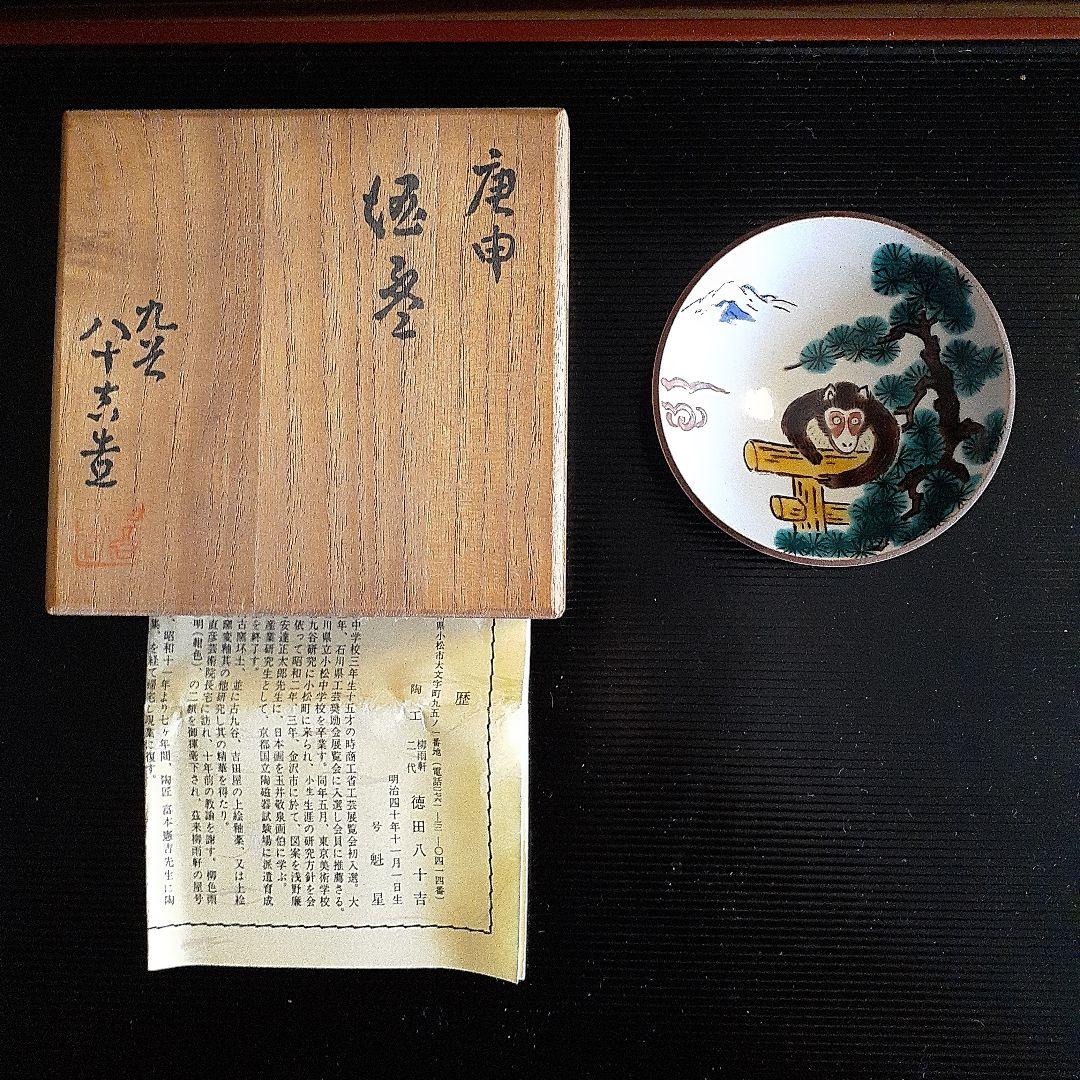 庚申
盃
九谷
八十吉造
歴
県小松市大文字町九五ノ一番地(電話
陶工 柳雨軒 二代 徳田八十吉
明治四十年十一月一日生
号 魁星
中学校三年生十五才の時商工省工芸展覧会初入選。大
年、石川県工芸奨励会展覧会に入選し会員に推薦さる。
川県立小松中学校を卒業す。同年五月、東京美術学校
九谷研究に小松町に来られ、小生生涯の研究方針を会
依って昭和二年、三年、金沢市に於て、図案を浅野廉
安達正太郎先生に、日本画を玉井敬泉画伯に学ぶ。
産業研究生として、京都国立陶磁器試験場に派遣育成
を終了す。
古窯坏土、並に古九谷、吉田屋の上絵釉薬、又は上絵
窯変釉其の他研究し其の精華を得たり。
直彦芸術院長宅に訪れ、十年前の教諭を謝す、柳色雨
明(紺色)、の二額を御揮毫下され、茲来柳雨軒の屋号
、昭和十一年より七ヶ年間、陶匠 富本憲吉先生に陶
を経て帰宅し現業に復す。